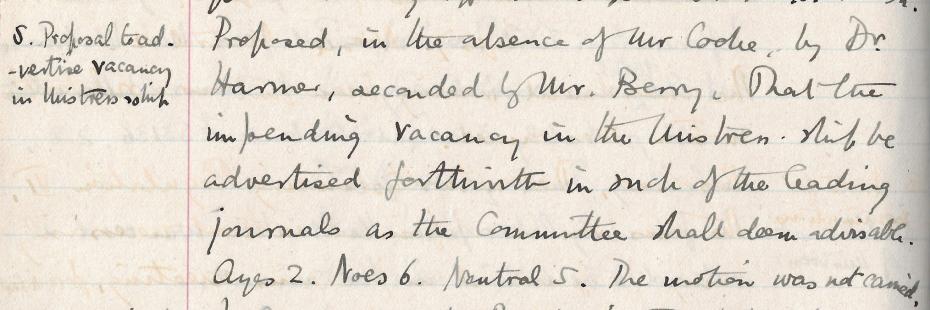 5. Proposal to ad-
-vertise vacancy
in Mistress-ship
Proposed, in the absence of Mr Cooke, by Dr
Harmer, seconded by Mr. Berry, That the
impending vacancy in the Mistress-ship be
advertised forthwith in such of the leading
journals as the Committee shall deem advisable.
Ayes 2. Noes 6. Neutral 5. The motion was not carried.